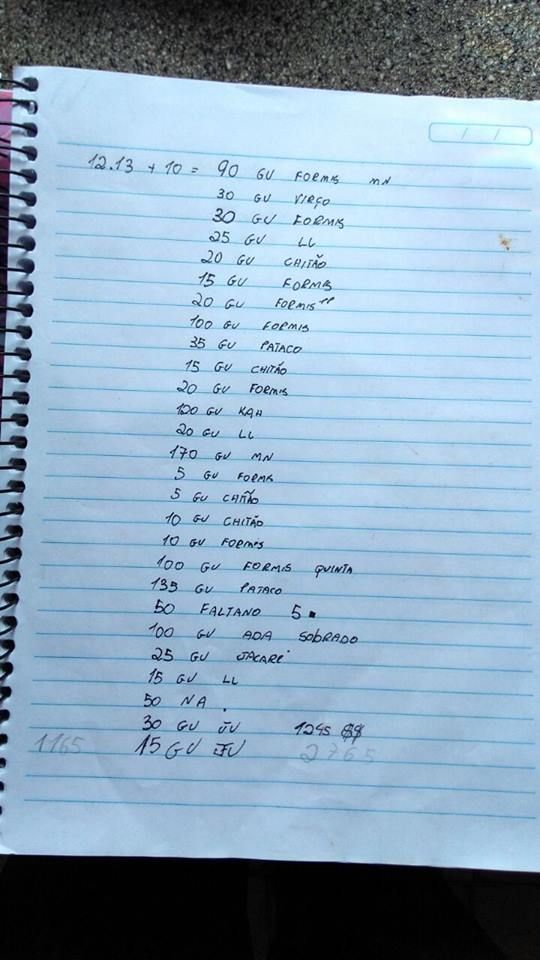 12.13 + 10 = 90 GU FORMIS MN
30 GU VIRGO
30 GU FORMIS
25 GU LL
20 GU CHITÃO
15 GU FORMIS
20 GU FORMIS
100 GU FORMIS
35 GU PATACO
15 GU CHITÃO
20 GU FORMIS
100 GU KAH
20 GU LL
170 GU MN
5 GU FORMIS
5 GU CHITÃO
10 GU CHITÃO
10 GU FORMIS
100 GU FORMIS QUINTA
135 GU PATACO
50 FALTANO 5
100 GU ADA SOBRADO
25 GU JACARÉ
15 GU LL
50 NA.
30 GU JU 1245 $$
1165 15 GU JU 2765